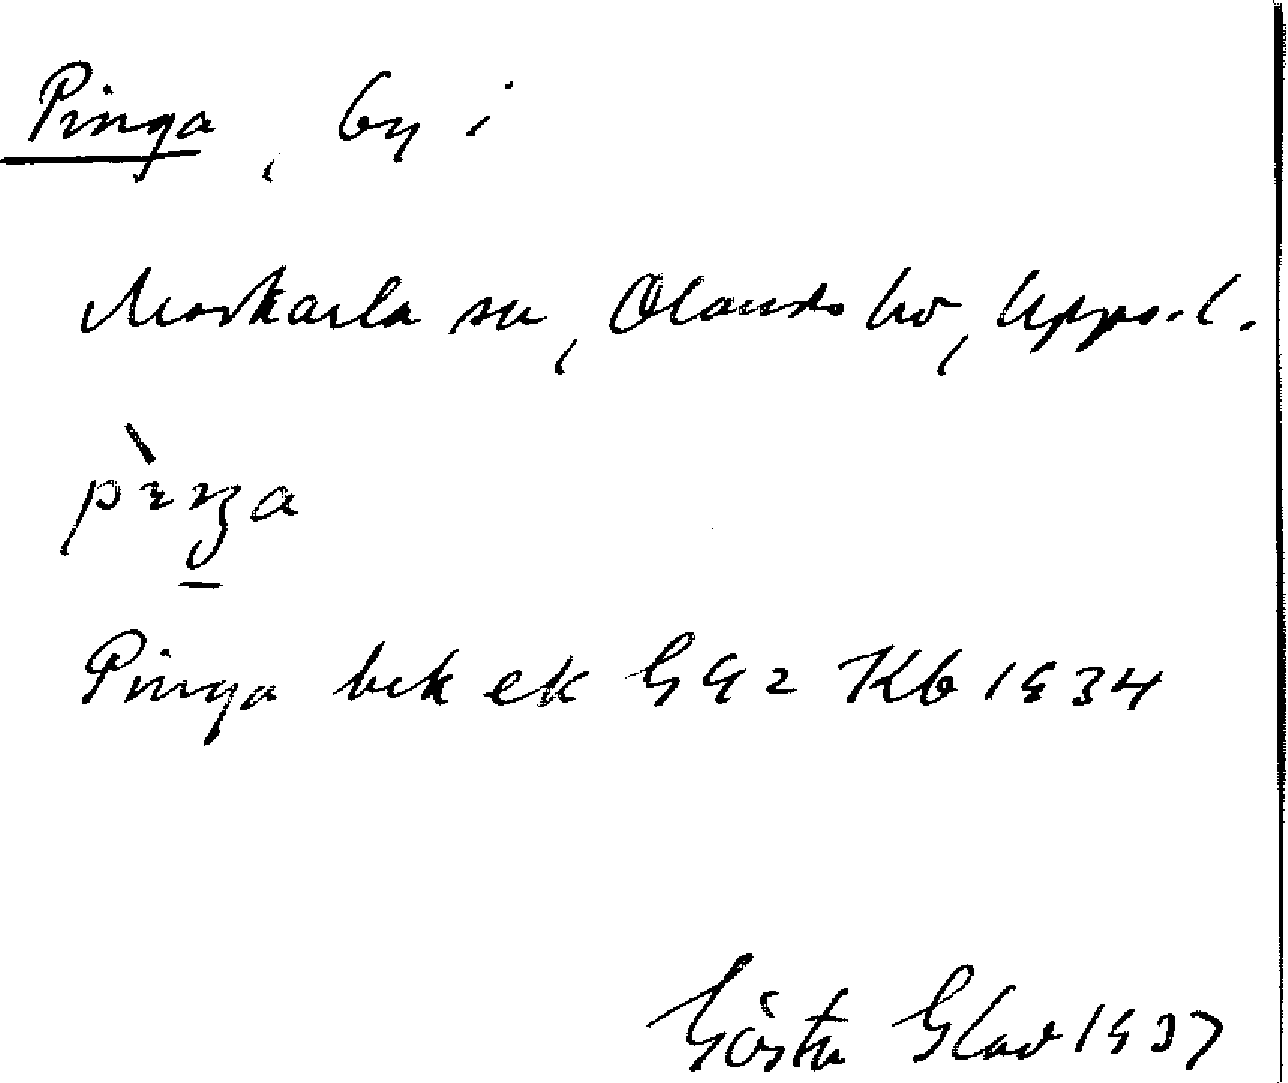 Pinga, by i
Morkarla sn, Olands hd, Upps. l.
pìŋa
Pinga bek ek GG2 Kb 1934
Gösta Glad 1937